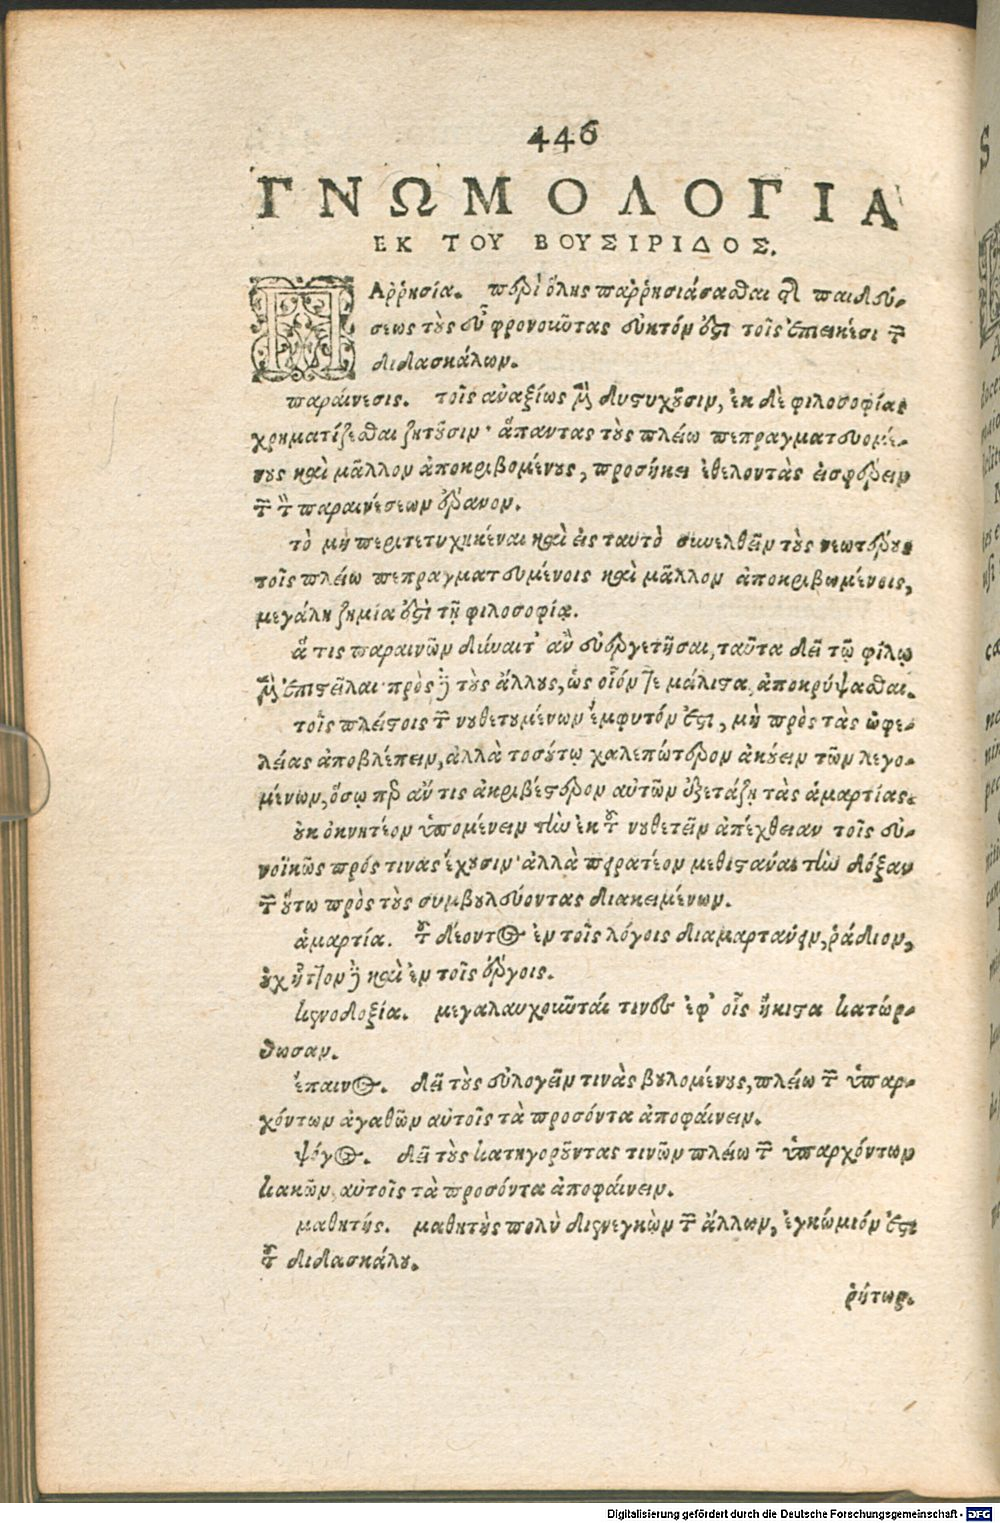 446
ΓΝΩΜΟΛΟΓΙΑ
ΕΚ ΤΟΥ ΒΟΥΣΙΡΙΔΟΣ.
ΠΑῤῥησία. περὶ ὅλης παῤῥησιάσασθαι τῆς παιδεύ-
σεως τοὺς εὖ φρονοῦντας εὐκτόν ἐστι τοῖς ἐπιεικέσι τῶν
διδασκάλων.
παραίνεσις. τοῖς ἀναξίως μὲν δυστυχοῦσιν, ἐκ δὲ φιλοσοφίας
χρηματίζεσθαι ζητοῦσιν· ἅπαντας τοὺς πλείω πεπραγματευομέ-
νους καὶ μᾶλλον ἀποκριβομένους, προσήκει ἐθελοντὰς εἰσφέρειν
τὸν τῶν παραινέσεων ἔρανον.
τὸ μὴ περιτετυχηκέναι καὶ εἰς ταυτὸ συνελθεῖν τοὺς νεωτέρους
τοῖς πλείω πεπραγματευμένοις καὶ μᾶλλον ἀποκριβωμένοις,
μεγάλη ζημία ἐστὶ τῇ φιλοσοφίᾳ.
ἅ τις παραινῶν δύναιτ' ἂν εὐεργετῆσαι, ταῦτα δεῖ τῷ φίλῳ
μὲν ἐπιστεῖλαι πρὸς δὲ τοὺς ἄλλους, ὡς οἷόν τε μάλιστα, ἀποκρύψασθαι.
τοῖς πλείστοις τῶν νουθετουμένων ἔμφυτόν ἐστι, μὴ πρὸς τὰς ὠφε-
λείας ἀποβλέπειν, ἀλλὰ τοσούτῳ χαλεπώτερον ἀκούειν τῶν λεγο-
μένων, ὅσῳ περ ἄν τις ἀκριβέστερον αὐτῶν ἐξετάζῃ τὰς ἁμαρτίας.
οὐκ ὀκνητέον ὑπομένειν τὴν ἐκ τοῦ νουθετεῖν ἀπέχθειαν τοῖς εὐ-
νοϊκῶς πρός τινας ἔχουσιν· ἀλλὰ πειρατέον μεθιστάναι τὴν δόξαν
τῶν οὕτω πρὸς τοὺς συμβουλεύοντας διακειμένων.
ἁμαρτία. τοῦ δέοντος ἐν τοῖς λόγοις διαμαρτάνειν, ῥᾴδιον,
οὐχ ἧττον δὲ καὶ ἐν τοῖς ἔργοις.
κενοδοξία. μεγαλαυχοῦνταί τινες ἐφ' οἷς ἥκιστα κατώρ-
θωσαν.
ἔπαινος. δεῖ τοὺς εὐλογεῖν τινὰς βουλομένους, πλείω τῶν ὑπαρ-
χόντων ἀγαθῶν αὐτοῖς τὰ προσόντα ἀποφαίνειν.
ψόγος. δεῖ τοὺς κατηγοροῦντας τινῶν πλείω τῶν ὑπαρχόντων
κακῶν αὐτοῖς τὰ προσόντα ἀποφαίνειν.
μαθητής. μαθητὴς πολὺ διενεγκὼν τῶν ἄλλων, ἐγκώμιόν ἐστι
τοῦ διδασκάλου.
ῥήτωρ.
Digitalisierung gefördert durch die Deutsche Forschungsgemeinschaft - DFG